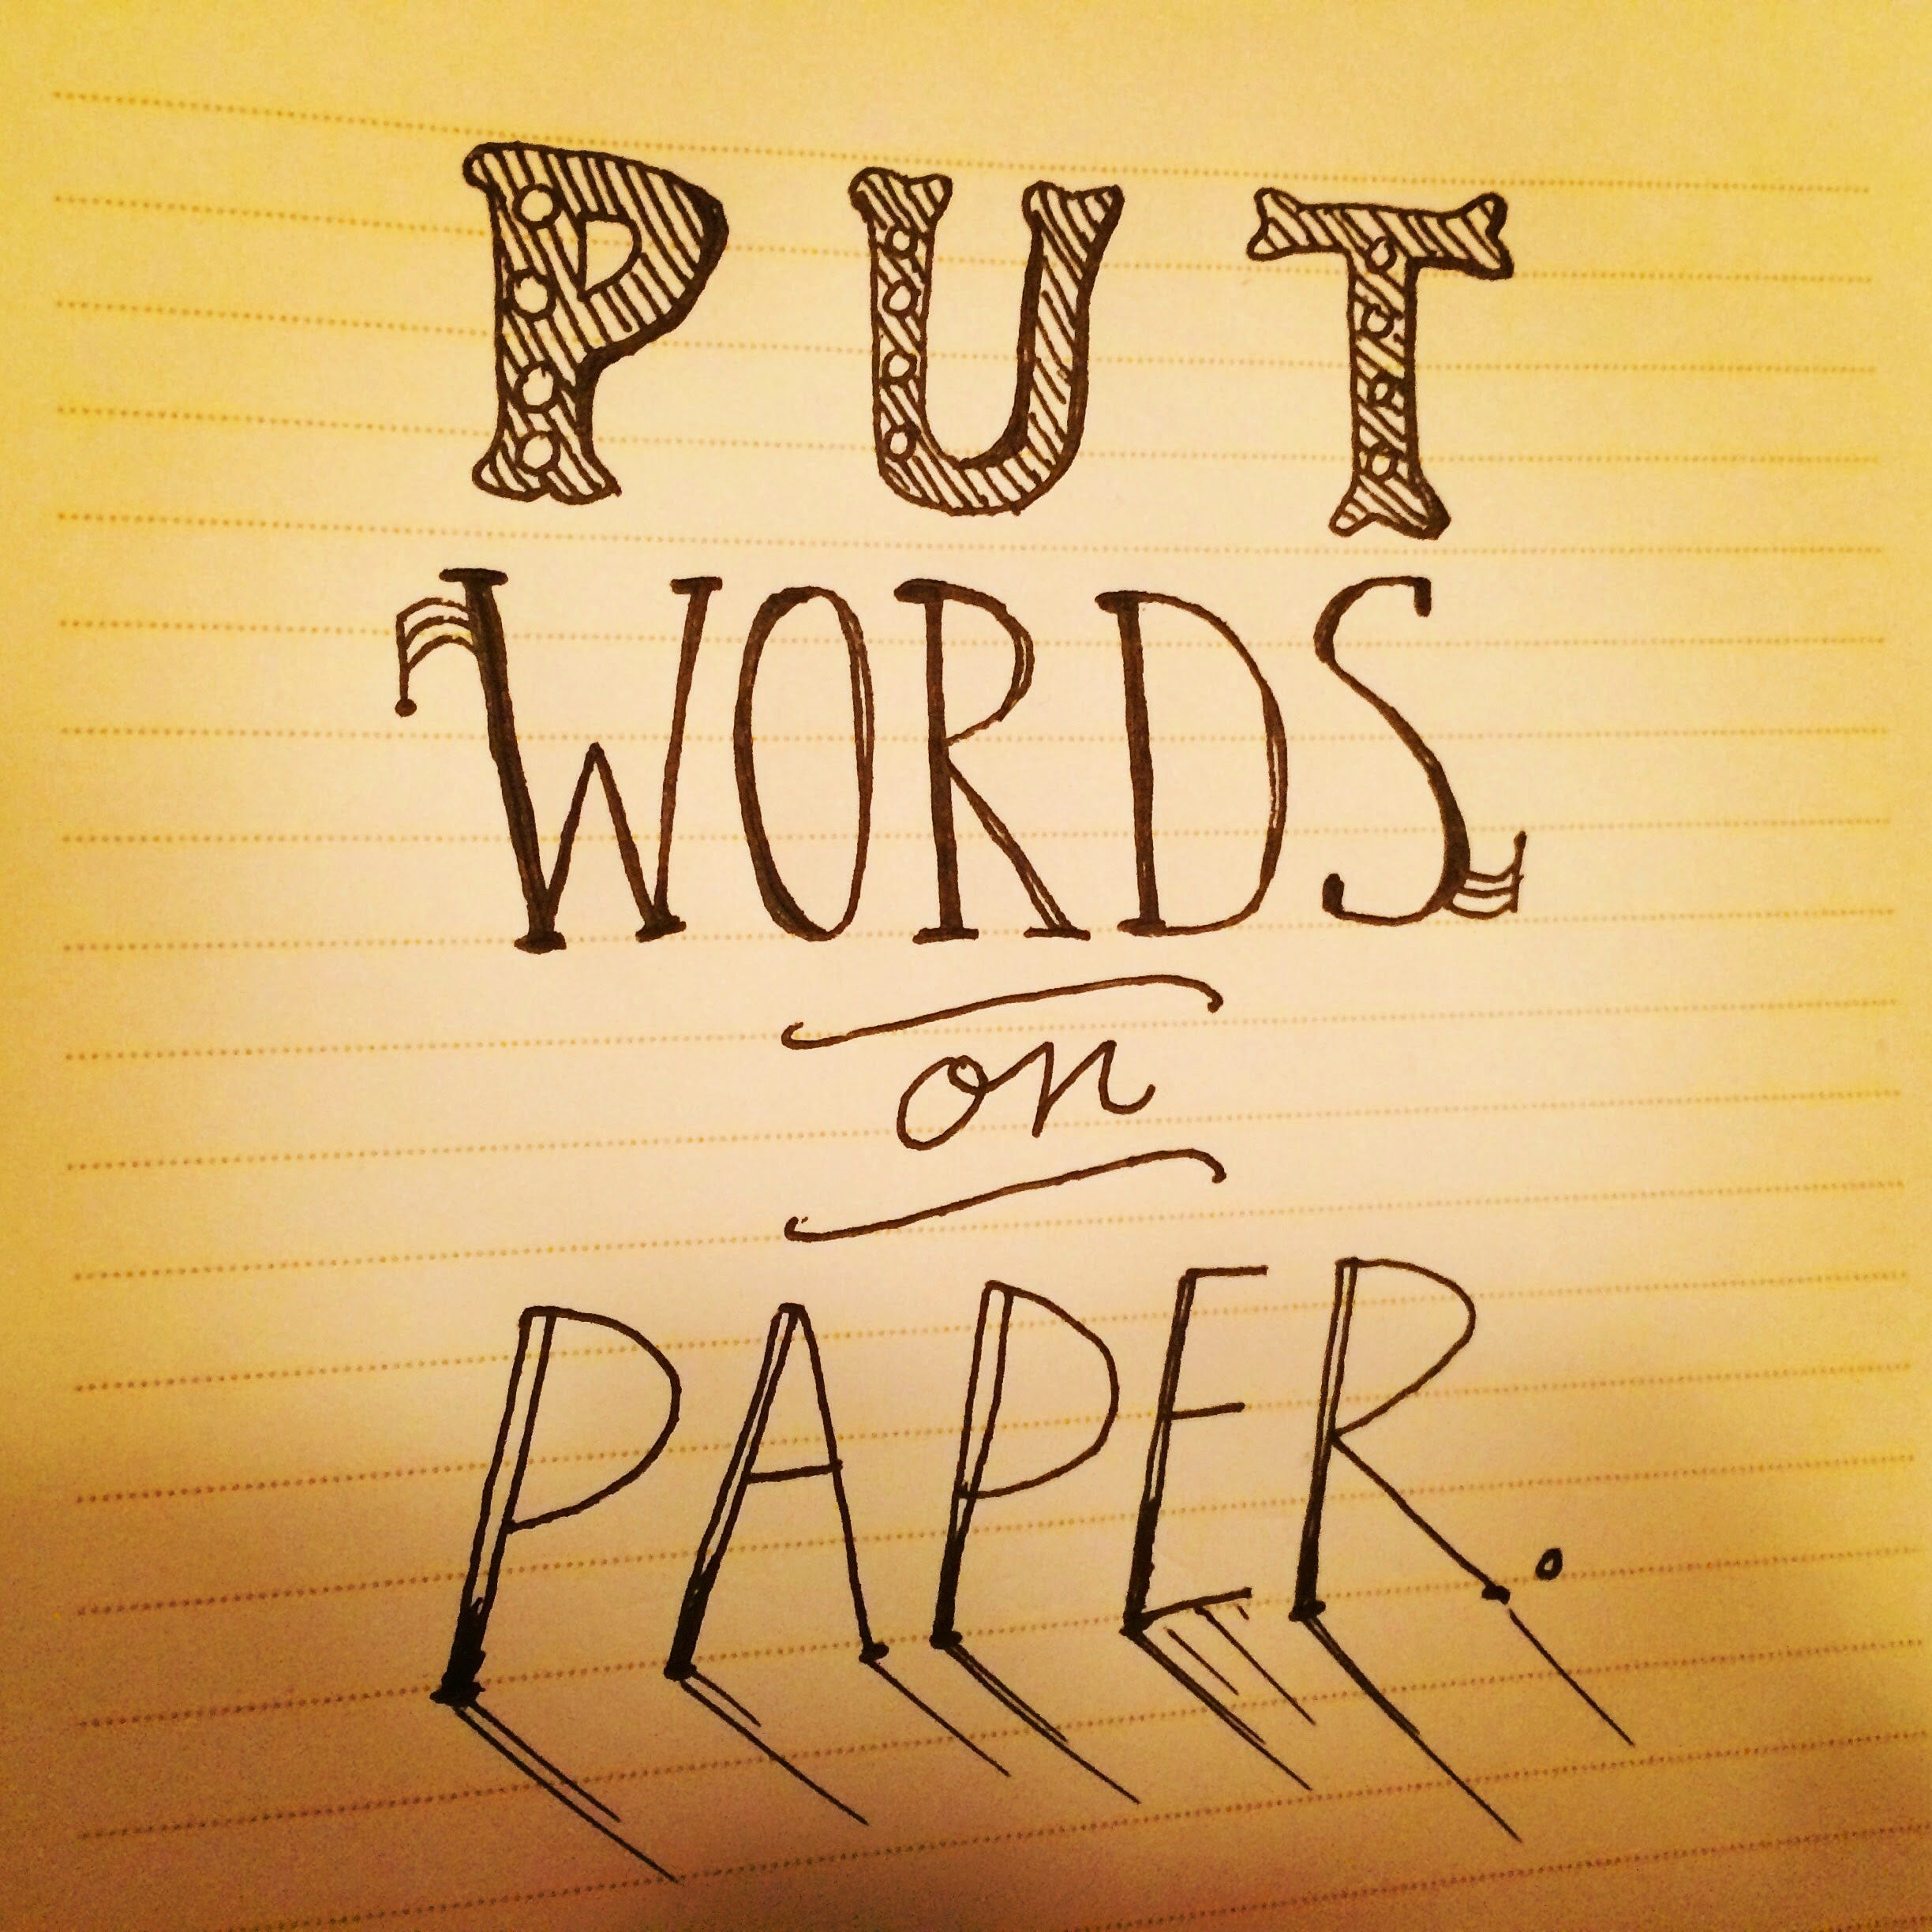 PUT
WORDS
on
PAPER.